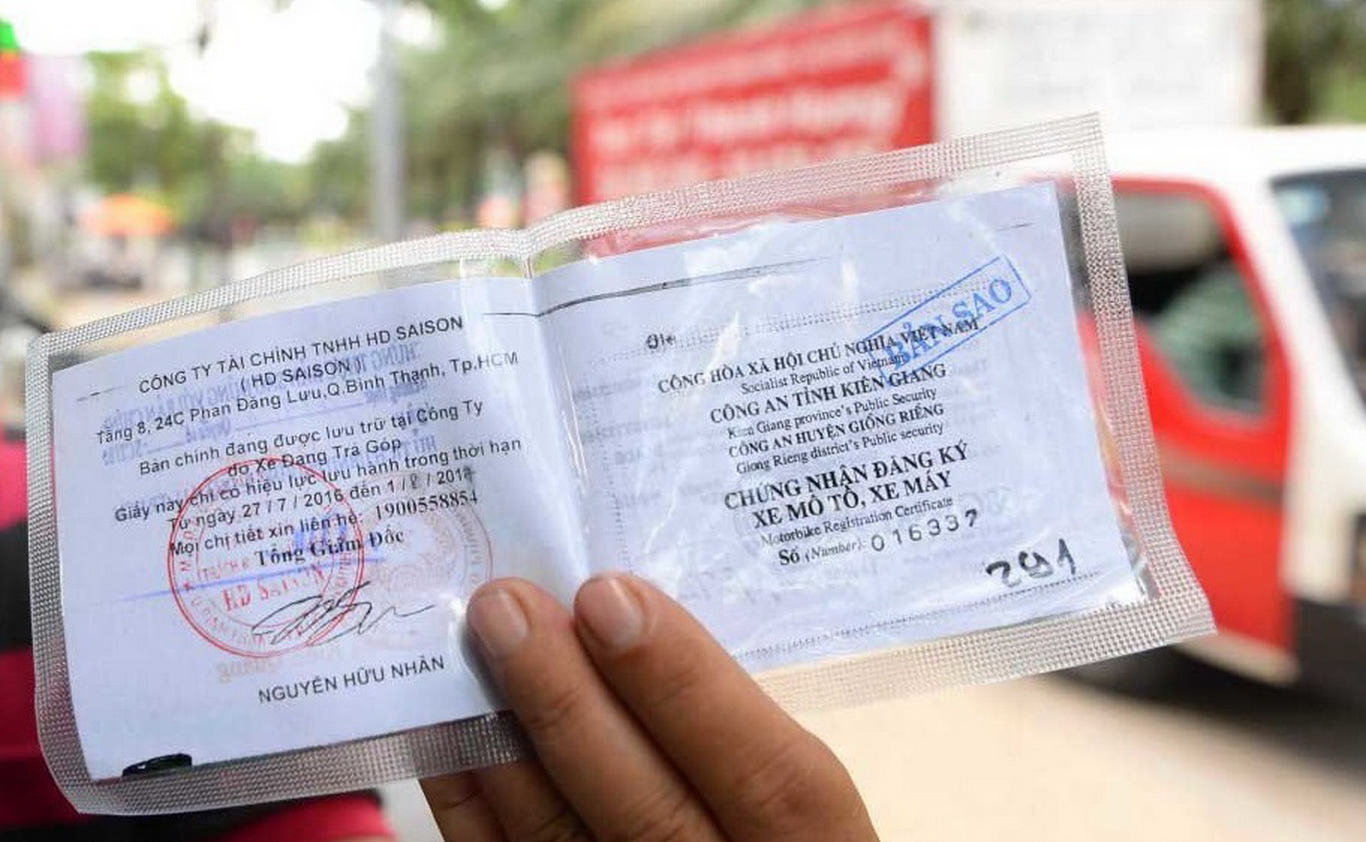 CÔNG TY TÀI CHÍNH TNHH HD SAISON
( HD SAISON )
Tầng 8, 24C Phan Đăng Lưu,Q.Bình Thạnh, Tp.HCM
Bản chính đang được lưu trữ tại Công Ty
do Xe Đang Trả Góp
Giấy này chỉ có hiệu lực lưu hành trong thời hạn
Từ ngày 27 / 7 / 2016 đến
Mọi chi tiết xin liên hệ: 1900558854
Tổng Giám Đốc
HD SAISON
NGUYỄN HỮU NHÂN
BẢN SAO
CỘNG HÒA XÃ HỘI CHỦ NGHĨA VIỆT NAM
Socialist Republic of Vietnam
CÔNG AN TỈNH KIÊN GIANG
Kien Giang province's Public Security
CÔNG AN HUYỆN GIỒNG RIỀNG
Giong Rieng district's Public security
CHỨNG NHẬN ĐĂNG KÝ
XE MÔ TÔ, XE MÁY
Motorbike Registration Certificate
Số (Number): 016337
291